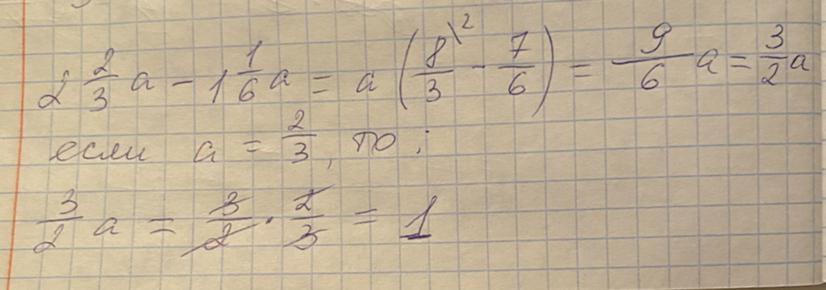 2 2/3 a - 1 1/6 a = a (8\2/3 - 7/6) = 9/6 a = 3/2 a
если a = 2/3, то:
3/2 a = 3/2 · 2/3 = 1